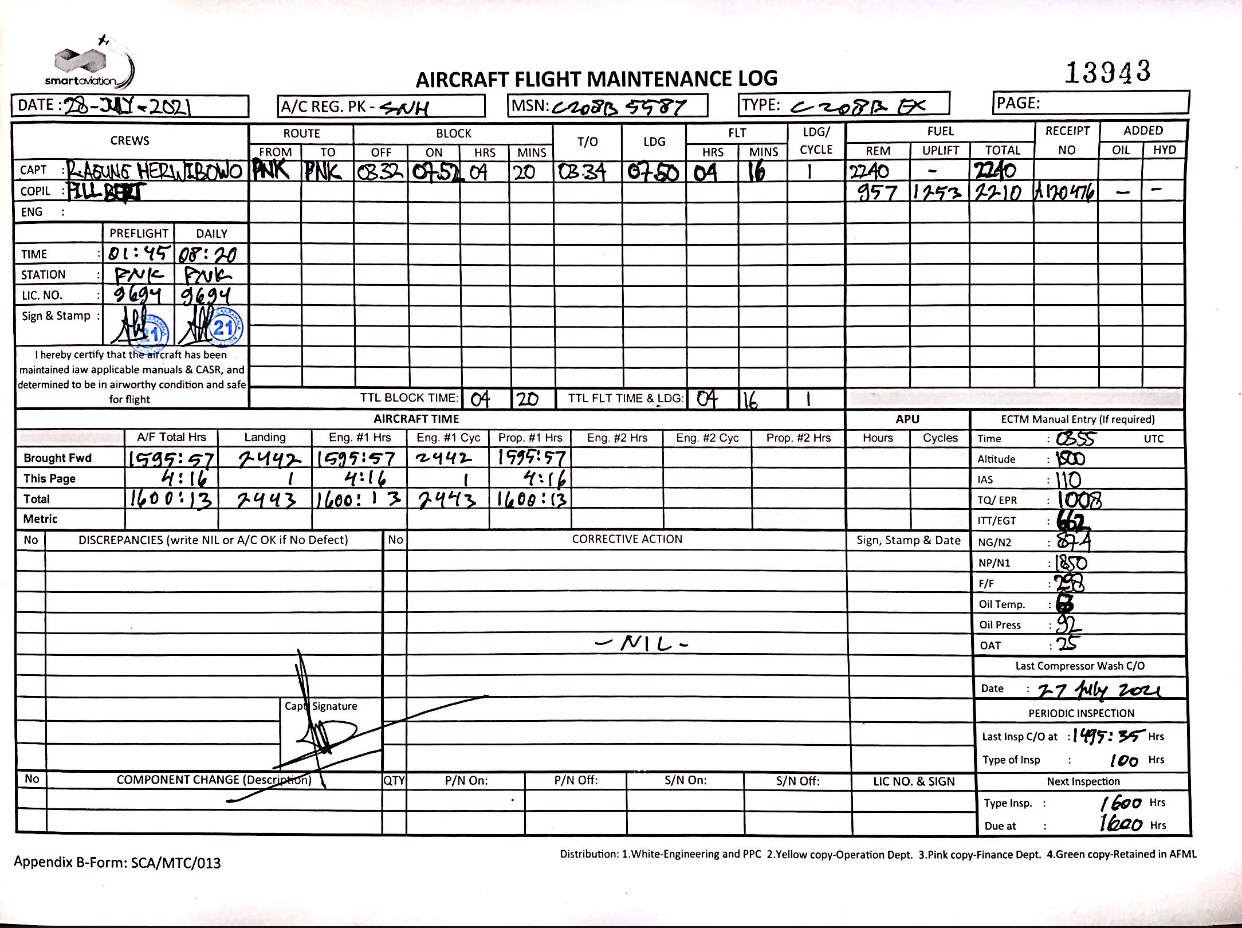 smartaviation
AIRCRAFT FLIGHT MAINTENANCE LOG
13943
DATE : 28-JULY-2021 A/C REG. PK - SNH MSN: C208B 5587 TYPE: C208B EX PAGE:
CREWS ROUTE BLOCK T/O LDG FLT LDG/ CYCLE FUEL RECEIPT NO ADDED
FROM TO OFF ON HRS MINS HRS MINS REM UPLIFT TOTAL OIL HYD
CAPT : R.AGUNG HERWIBOWO PNK PNK 03.32 07.52 04 20 03.34 07.50 04 16 1 2240 - 2240
COPIL : FILLBERT 957 1253 2210 A120476 - -
ENG :
PREFLIGHT DAILY
TIME : 01:45 08:20
STATION : PNK PNK
LIC. NO. : 9694 9694
Sign & Stamp : 21 21
I hereby certify that the aircraft has been
maintained iaw applicable manuals & CASR, and
determined to be in airworthy condition and safe
for flight
TTL BLOCK TIME: 04 20 TTL FLT TIME & LDG: 04 16 1
AIRCRAFT TIME APU ECTM Manual Entry (If required)
A/F Total Hrs Landing Eng. #1 Hrs Eng. #1 Cyc Prop. #1 Hrs Eng. #2 Hrs Eng. #2 Cyc Prop. #2 Hrs Hours Cycles Time : 0355 UTC
Brought Fwd 1595:57 2442 1595:57 2442 1595:57 Altitude :
This Page 4:16 1 4:16 1 4:16 IAS : 110
Total 1600:13 2443 1600:13 2443 1600:13 TQ/ EPR : 1008
Metric ITT/EGT : 662
No DISCREPANCIES (write NIL or A/C OK if No Defect) No CORRECTIVE ACTION Sign, Stamp & Date NG/N2 : 87.4
NP/N1 : 1850
F/F : 298
Oil Temp. :
Oil Press : 92
- NIL - OAT : 25
Last Compressor Wash C/O
Date : 27 July 2021
Capt Signature
PERIODIC INSPECTION
Last Insp C/O at : 1495:35 Hrs
Type of Insp : 100 Hrs
No COMPONENT CHANGE (Description) QTY P/N On: P/N Off: S/N On: S/N Off: LIC NO. & SIGN Next Inspection
Type Insp. : 1600 Hrs
Due at : 1600 Hrs
Appendix B-Form: SCA/MTC/013
Distribution: 1.White-Engineering and PPC 2.Yellow copy-Operation Dept. 3.Pink copy-Finance Dept. 4.Green copy-Retained in AFML